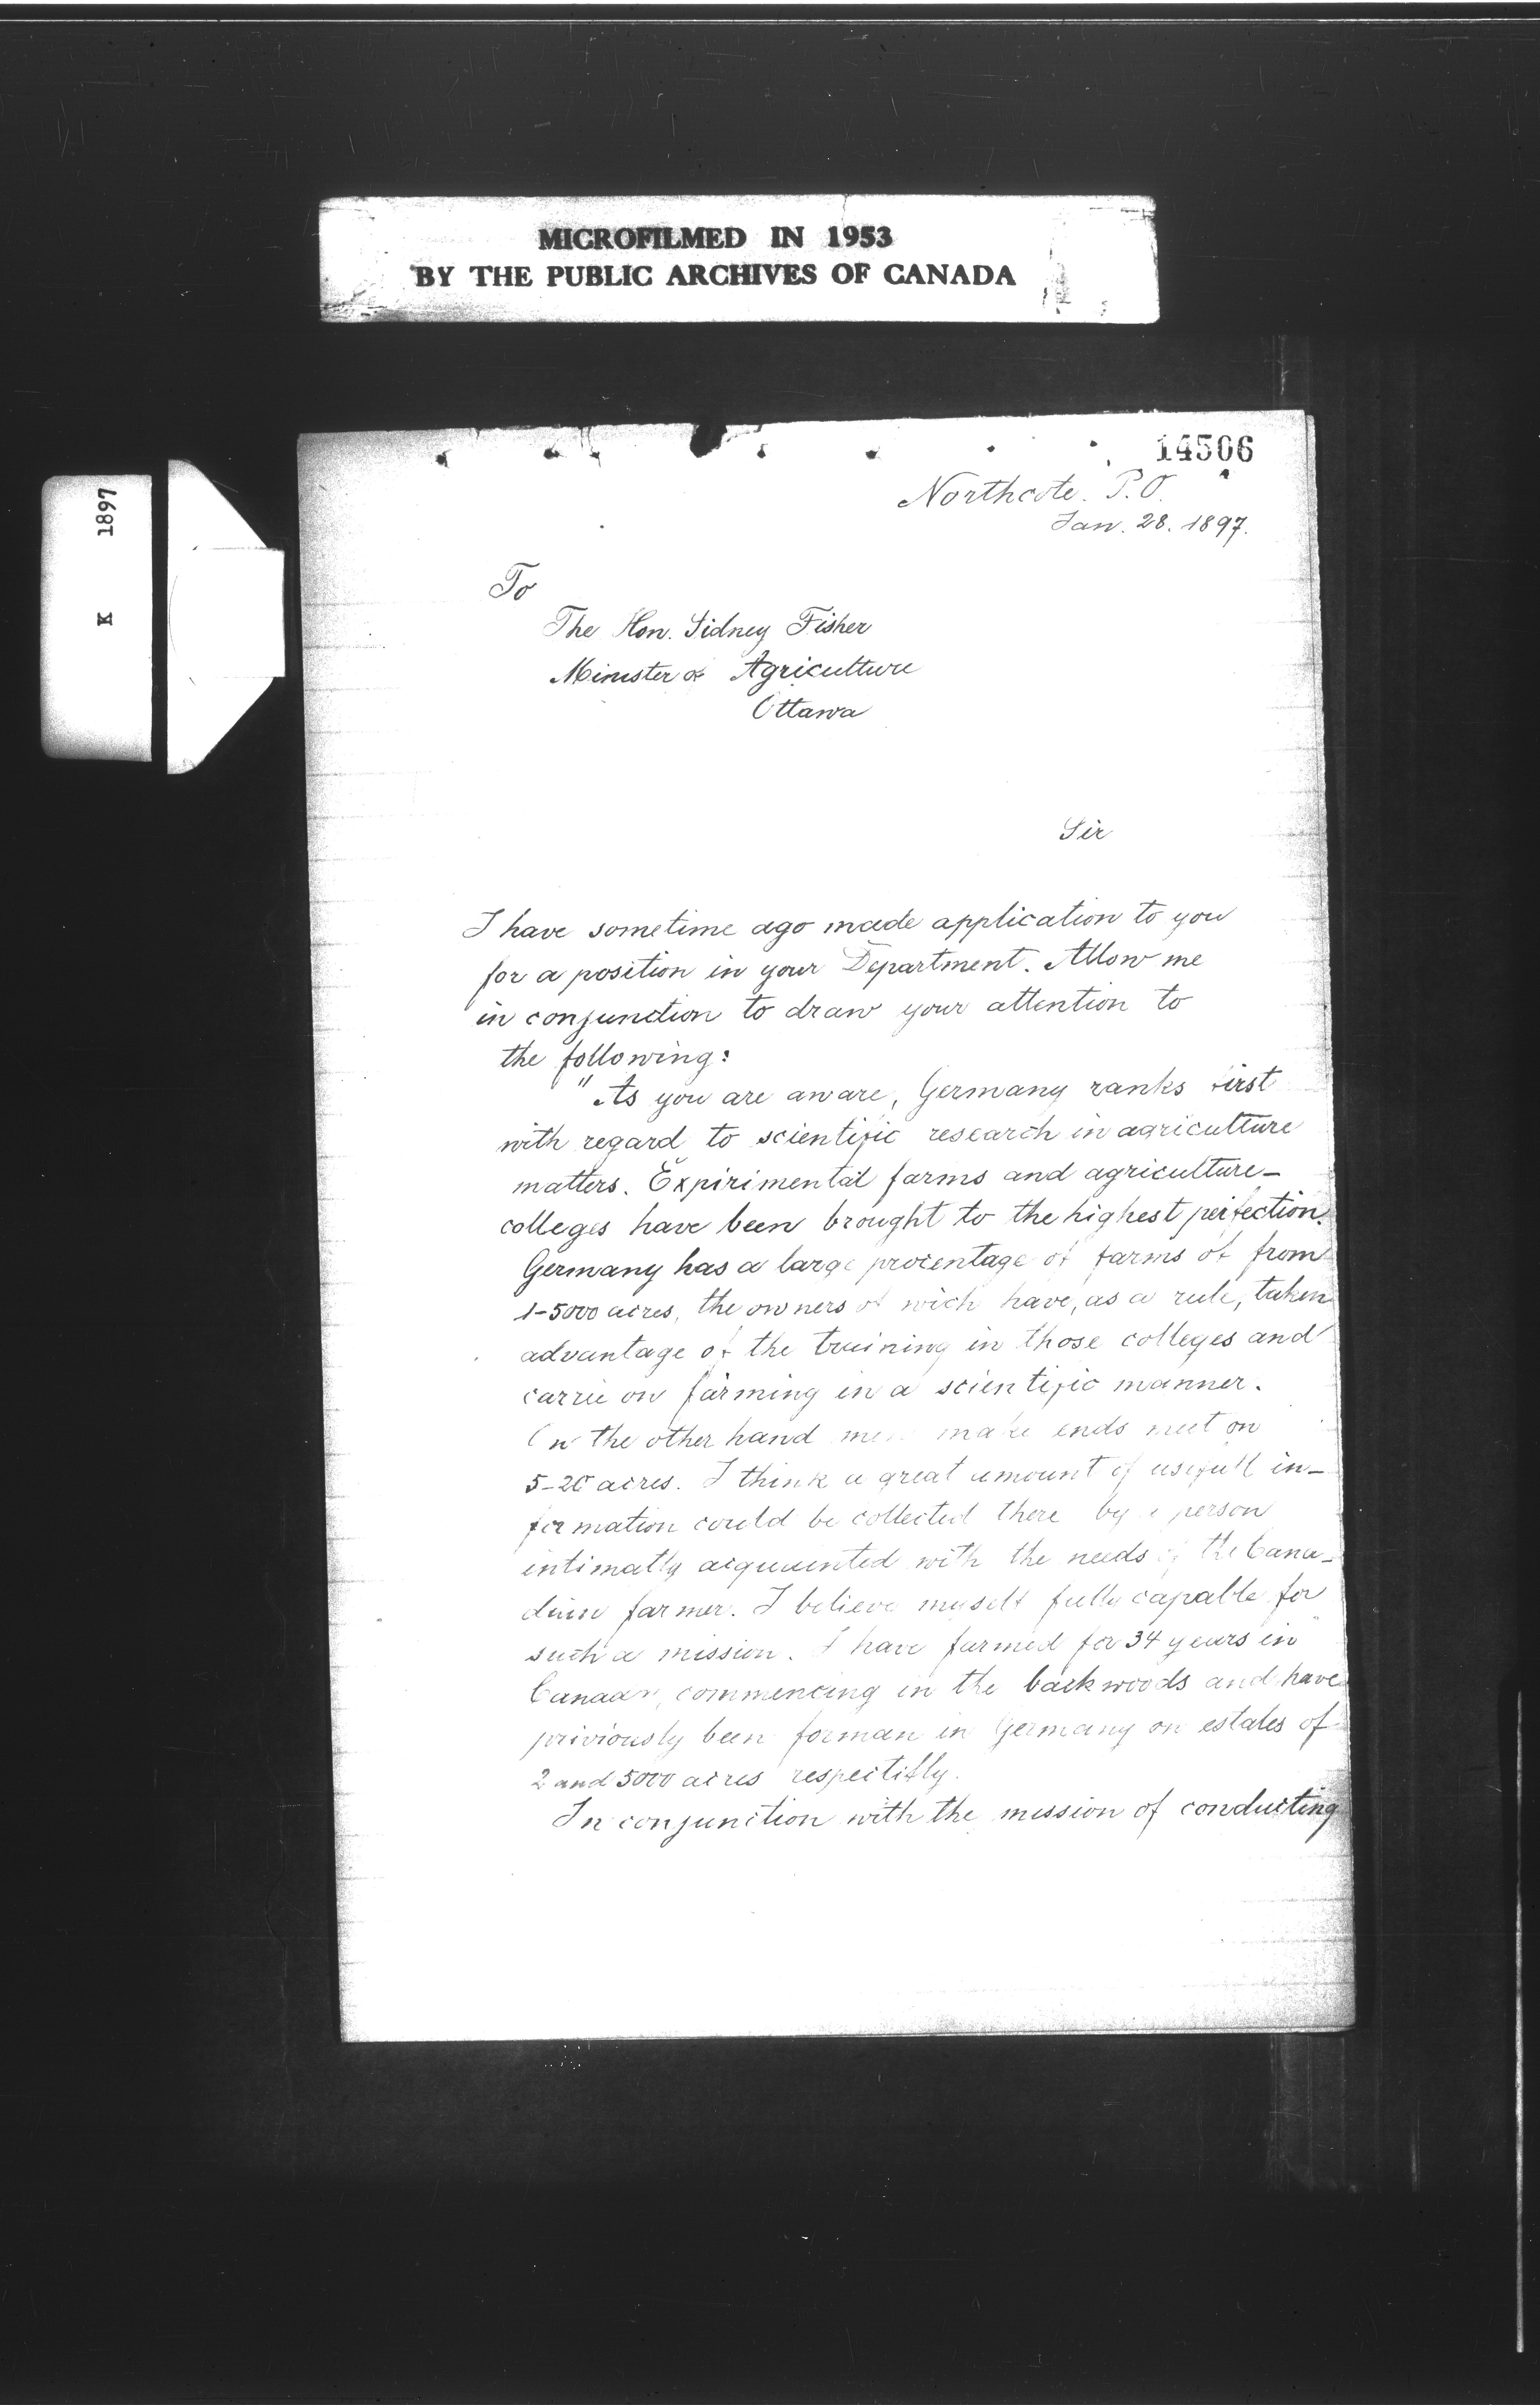 MICROFILMED IN 1953
BY THE PUBLIC ARCHIVES OF CANADA
K 1897
14506
Northcote. P.O.
Jan. 28. 1897.
To
The Hon. Sidney Fisher
Minister of Agriculture
Ottawa
Sir
I have sometime ago made application to you
for a position in your Department. Allow me
in conjunction to draw your attention to
the following:
"As you are aware, Germany ranks first
with regard to scientific research in agriculture
matters. Expirimental farms and agriculture-
colleges have been brought to the highest perfection.
Germany has a large procentage of farms of from
1-5000 acres, the owners of wich have, as a rule, taken
advantage of the training in those colleges and
carrie on farming in a scientific manner.
On the other hand men make ends meet on
5-20 acres. I think a great amount of usefull in-
formation could be collected there by a person
intimatly acquainted with the needs of the Cana-
dian farmer. I believe myself fully capable for
such a mission. I have farmed for 34 years in
Canada, commencing in the backwoods and have
priviously been forman in Germany on estates of
2 and 5000 acres respectifly.
In conjunction with the mission of conducting